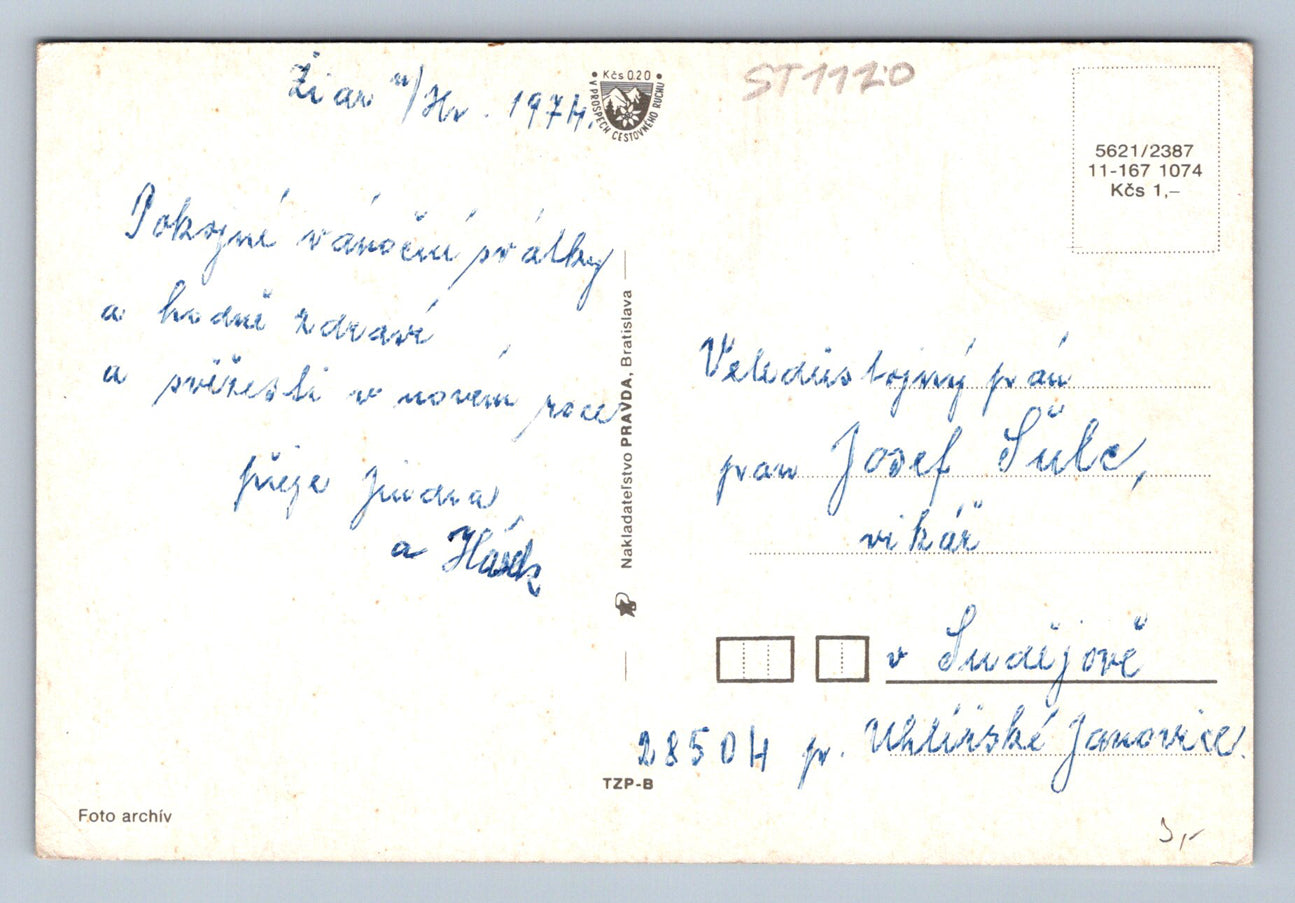 Žiar n/Hr. 1974.
Kčs 0.20
V PROSPECH CESTOVNÉHO RUCHU
ST1120
5621/2387
11-167 1074
Kčs 1,–
Pokojné vánoční svátky
a hodně zdraví
a svěžesti v novém roce
přeje Jindra
a
Nakladateľstvo PRAVDA, Bratislava
Veledůstojný pán
pan Josef Šulc,
vikář
v Sudějově
28504 p. Uhlířské Janovice
TZP-B
Foto archív
3,-